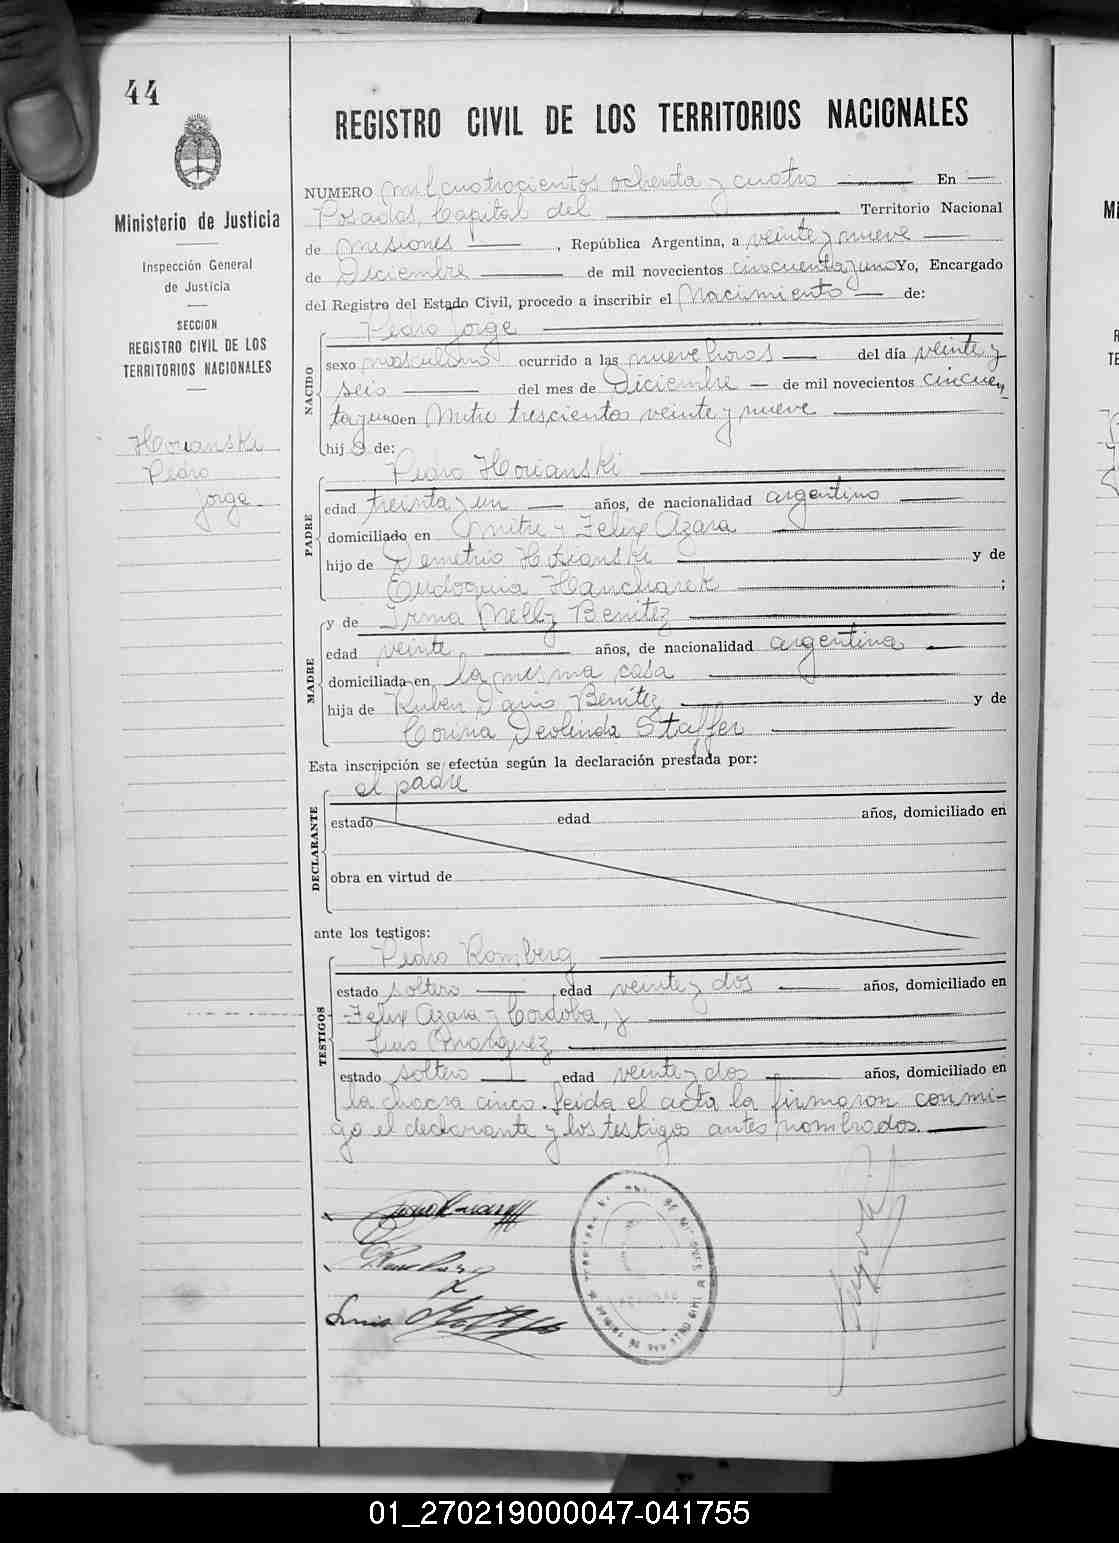 44
REGISTRO CIVIL DE LOS TERRITORIOS NACIONALES
Ministerio de Justicia
Inspección General
de Justicia
SECCION
REGISTRO CIVIL DE LOS
TERRITORIOS NACIONALES
Horianski
Pedro
Jorge
NUMERO mil cuatrocientos ochenta y cuatro En
Posadas, Capital del Territorio Nacional
de Misiones, República Argentina, a veinte y nueve
de Diciembre de mil novecientos cincuenta y uno Yo, Encargado
del Registro del Estado Civil, procedo a inscribir el Nacimiento de:
NACIDO
Pedro Jorge
sexo masculino ocurrido a las nueve horas del día veinte y
seis del mes de Diciembre de mil novecientos cincuen
ta y uno en Mitre trescientos veinte y nueve
hijo de:
PADRE
Pedro Horianski
edad treinta y un años, de nacionalidad argentino
domiciliado en Mitre y Felix Azara
hijo de Demetrio Horianski y de
Eudoquia Hancharek ;
MADRE
y de Irma Nelly Benitez
edad veinte años, de nacionalidad argentina
domiciliada en la misma casa
hija de Ruben Dario Benitez y de
Corina Deolinda Staffer
Esta inscripción se efectúa según la declaración prestada por:
DECLARANTE
el padre
estado edad años, domiciliado en
obra en virtud de
ante los testigos:
TESTIGOS
Pedro Romberg
estado soltero edad veinte y dos años, domiciliado en
Felix Azara y Cordoba, y
Luis Marquez
estado soltero edad veinte y dos años, domiciliado en
la chacra cinco. Leida el acta la firmaron conmi-
go el declarante y los testigos antes nombrados.
Luis
01_270219000047-041755